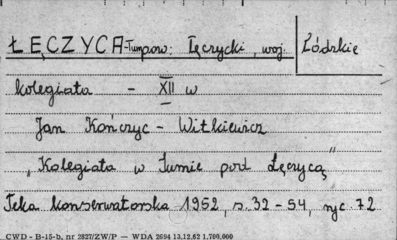 ŁĘCZYCA-Tum pow. Łęczycki, woj. Łódzkie
kolegiata - XII w
Jan Kończyc - Witkiewicz
„Kolegiata w Tumie pod Łęczycą"
Teka konserwatorska 1952, s. 32 - 54, ryc. 72
CWD - B-15-b, nr 2827/ZW/P — WDA 2694 13.12.62 1.700.000